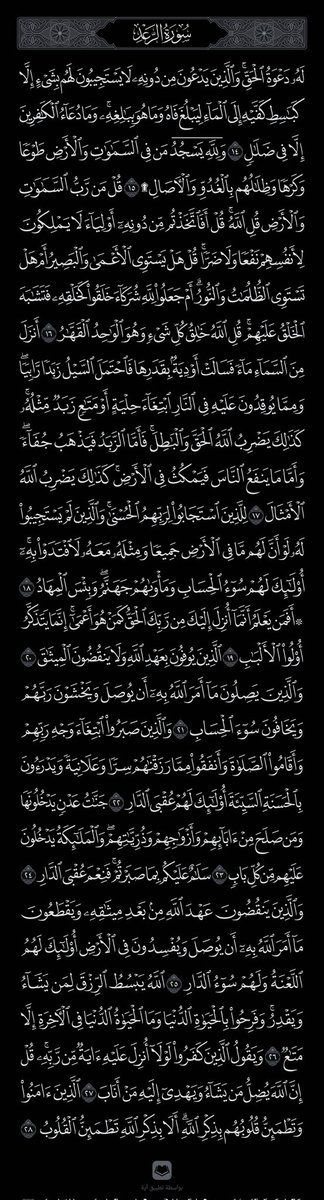 سُورَةُ الرَّعْدِ
لَهُۥ دَعْوَةُ ٱلْحَقِّ ۖ وَٱلَّذِينَ يَدْعُونَ مِن دُونِهِۦ لَا يَسْتَجِيبُونَ لَهُم بِشَىْءٍ إِلَّا
كَبَٰسِطِ كَفَّيْهِ إِلَى ٱلْمَآءِ لِيَبْلُغَ فَاهُ وَمَا هُوَ بِبَٰلِغِهِۦ ۚ وَمَا دُعَآءُ ٱلْكَٰفِرِينَ
إِلَّا فِى ضَلَٰلٍ ١٤ وَلِلَّهِ يَسْجُدُ مَن فِى ٱلسَّمَٰوَٰتِ وَٱلْأَرْضِ طَوْعًا
وَكَرْهًا وَظِلَٰلُهُم بِٱلْغُدُوِّ وَٱلْءَاصَالِ ۩ ١٥ قُلْ مَن رَّبُّ ٱلسَّمَٰوَٰتِ
وَٱلْأَرْضِ قُلِ ٱللَّهُ ۚ قُلْ أَفَٱتَّخَذْتُم مِّن دُونِهِۦٓ أَوْلِيَآءَ لَا يَمْلِكُونَ
لِأَنفُسِهِمْ نَفْعًا وَلَا ضَرًّا ۚ قُلْ هَلْ يَسْتَوِى ٱلْأَعْمَىٰ وَٱلْبَصِيرُ أَمْ هَلْ
تَسْتَوِى ٱلظُّلُمَٰتُ وَٱلنُّورُ ۗ أَمْ جَعَلُوا۟ لِلَّهِ شُرَكَآءَ خَلَقُوا۟ كَخَلْقِهِۦ فَتَشَٰبَهَ
ٱلْخَلْقُ عَلَيْهِمْ ۚ قُلِ ٱللَّهُ خَٰلِقُ كُلِّ شَىْءٍ وَهُوَ ٱلْوَٰحِدُ ٱلْقَهَّٰرُ ١٦ أَنزَلَ
مِنَ ٱلسَّمَآءِ مَآءً فَسَالَتْ أَوْدِيَةٌۢ بِقَدَرِهَا فَٱحْتَمَلَ ٱلسَّيْلُ زَبَدًا رَّابِيًا ۚ
وَمِمَّا يُوقِدُونَ عَلَيْهِ فِى ٱلنَّارِ ٱبْتِغَآءَ حِلْيَةٍ أَوْ مَتَٰعٍ زَبَدٌ مِّثْلُهُۥ ۚ
كَذَٰلِكَ يَضْرِبُ ٱللَّهُ ٱلْحَقَّ وَٱلْبَٰطِلَ ۚ فَأَمَّا ٱلزَّبَدُ فَيَذْهَبُ جُفَآءً ۖ
وَأَمَّا مَا يَنفَعُ ٱلنَّاسَ فَيَمْكُثُ فِى ٱلْأَرْضِ ۚ كَذَٰلِكَ يَضْرِبُ ٱللَّهُ
ٱلْأَمْثَالَ ١٧ لِلَّذِينَ ٱسْتَجَابُوا۟ لِرَبِّهِمُ ٱلْحُسْنَىٰ ۚ وَٱلَّذِينَ لَمْ يَسْتَجِيبُوا۟
لَهُۥ لَوْ أَنَّ لَهُم مَّا فِى ٱلْأَرْضِ جَمِيعًا وَمِثْلَهُۥ مَعَهُۥ لَٱفْتَدَوْا۟ بِهِۦٓ ۚ
أُو۟لَٰٓئِكَ لَهُمْ سُوٓءُ ٱلْحِسَابِ وَمَأْوَىٰهُمْ جَهَنَّمُ ۖ وَبِئْسَ ٱلْمِهَادُ ١٨
۞ أَفَمَن يَعْلَمُ أَنَّمَآ أُنزِلَ إِلَيْكَ مِن رَّبِّكَ ٱلْحَقُّ كَمَنْ هُوَ أَعْمَىٰٓ ۚ إِنَّمَا يَتَذَكَّرُ
أُو۟لُوا۟ ٱلْأَلْبَٰبِ ١٩ ٱلَّذِينَ يُوفُونَ بِعَهْدِ ٱللَّهِ وَلَا يَنقُضُونَ ٱلْمِيثَٰقَ ٢٠
وَٱلَّذِينَ يَصِلُونَ مَآ أَمَرَ ٱللَّهُ بِهِۦٓ أَن يُوصَلَ وَيَخْشَوْنَ رَبَّهُمْ
وَيَخَافُونَ سُوٓءَ ٱلْحِسَابِ ٢١ وَٱلَّذِينَ صَبَرُوا۟ ٱبْتِغَآءَ وَجْهِ رَبِّهِمْ
وَأَقَامُوا۟ ٱلصَّلَوٰةَ وَأَنفَقُوا۟ مِمَّا رَزَقْنَٰهُمْ سِرًّا وَعَلَانِيَةً وَيَدْرَءُونَ
بِٱلْحَسَنَةِ ٱلسَّيِّئَةَ أُو۟لَٰٓئِكَ لَهُمْ عُقْبَى ٱلدَّارِ ٢٢ جَنَّٰتُ عَدْنٍ يَدْخُلُونَهَا
وَمَن صَلَحَ مِنْ ءَابَآئِهِمْ وَأَزْوَٰجِهِمْ وَذُرِّيَّٰتِهِمْ ۖ وَٱلْمَلَٰٓئِكَةُ يَدْخُلُونَ
عَلَيْهِم مِّن كُلِّ بَابٍ ٢٣ سَلَٰمٌ عَلَيْكُم بِمَا صَبَرْتُمْ ۚ فَنِعْمَ عُقْبَى ٱلدَّارِ ٢٤
وَٱلَّذِينَ يَنقُضُونَ عَهْدَ ٱللَّهِ مِنۢ بَعْدِ مِيثَٰقِهِۦ وَيَقْطَعُونَ
مَآ أَمَرَ ٱللَّهُ بِهِۦٓ أَن يُوصَلَ وَيُفْسِدُونَ فِى ٱلْأَرْضِ ۙ أُو۟لَٰٓئِكَ لَهُمُ
ٱللَّعْنَةُ وَلَهُمْ سُوٓءُ ٱلدَّارِ ٢٥ ٱللَّهُ يَبْسُطُ ٱلرِّزْقَ لِمَن يَشَآءُ
وَيَقْدِرُ ۚ وَفَرِحُوا۟ بِٱلْحَيَوٰةِ ٱلدُّنْيَا وَمَا ٱلْحَيَوٰةُ ٱلدُّنْيَا فِى ٱلْءَاخِرَةِ إِلَّا
مَتَٰعٌ ٢٦ وَيَقُولُ ٱلَّذِينَ كَفَرُوا۟ لَوْلَآ أُنزِلَ عَلَيْهِ ءَايَةٌ مِّن رَّبِّهِۦ ۗ قُلْ
إِنَّ ٱللَّهَ يُضِلُّ مَن يَشَآءُ وَيَهْدِىٓ إِلَيْهِ مَنْ أَنَابَ ٢٧ ٱلَّذِينَ ءَامَنُوا۟
وَتَطْمَئِنُّ قُلُوبُهُم بِذِكْرِ ٱللَّهِ ۗ أَلَا بِذِكْرِ ٱللَّهِ تَطْمَئِنُّ ٱلْقُلُوبُ ٢٨
بواسطة تطبيق آية